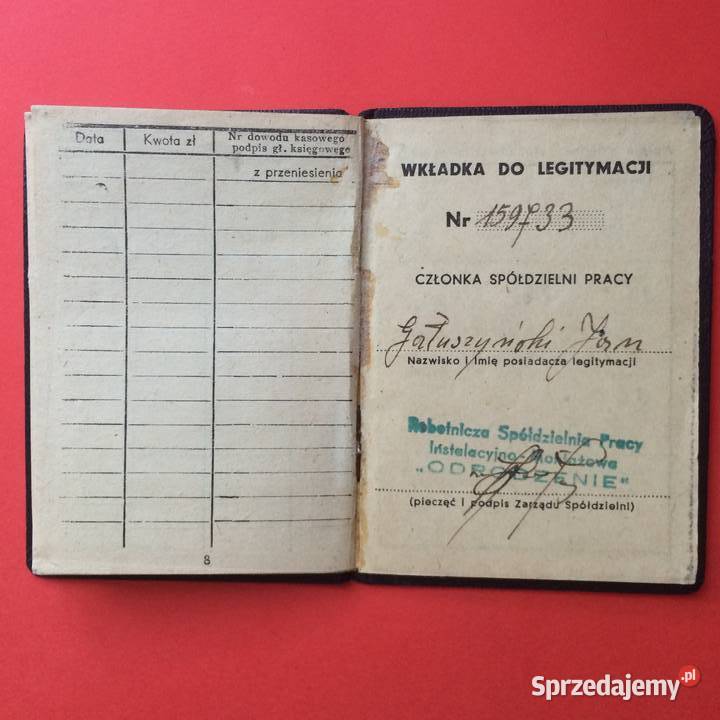 Data Kwota zł Nr dowodu kasowego
podpis gł. księgowego
z przeniesienia
8
WKŁADKA DO LEGITYMACJI
Nr 159733
CZŁONKA SPÓŁDZIELNI PRACY
Gałuszyński Jan
Nazwisko i imię posiadacza legitymacji
Robotnicza Spółdzielnia Pracy
Instalacyjno-Montażowa
„ODRODZENIE"
(pieczęć i podpis Zarządu Spółdzielni)
Sprzedajemy.pl